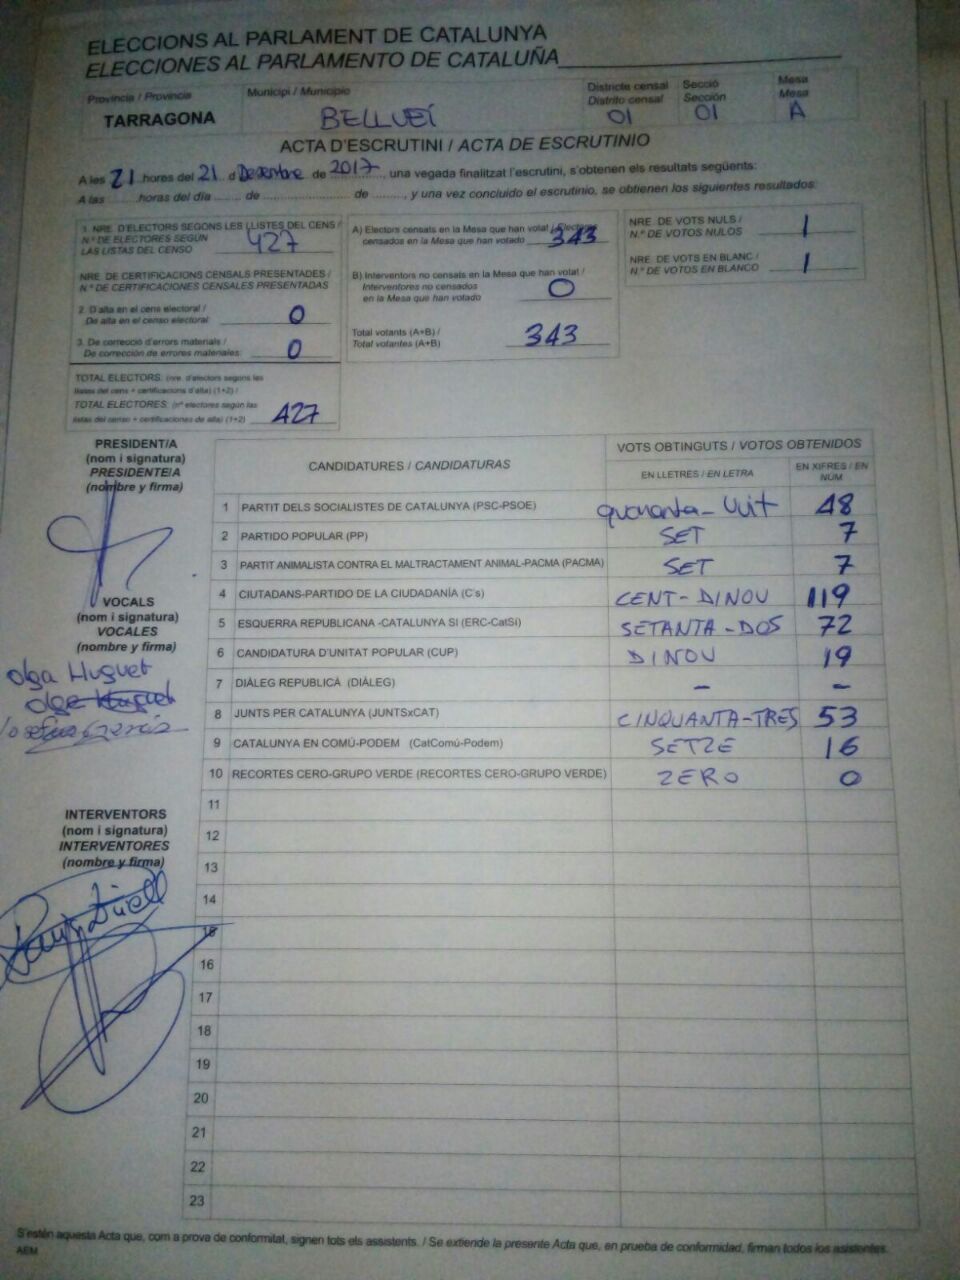 ELECCIONS AL PARLAMENT DE CATALUNYA
ELECCIONES AL PARLAMENTO DE CATALUÑA
Provincia / Provincia
TARRAGONA
Municipi / Municipio
BELLVEÍ
Districte censal
Distrito censal
01
Secció
Sección
01
Mesa
Mesa
A
ACTA D'ESCRUTINI / ACTA DE ESCRUTINIO
A les 21 hores del 21 d Desembre de 2017, una vegada finalitzat l'escrutini, s'obtenen els resultats següents:
A las ........horas del día ....... de ........................ de ........, y una vez concluido el escrutinio, se obtienen los siguientes resultados:
1. NRE. D'ELECTORS SEGONS LES LLISTES DEL CENS /
N.º DE ELECTORES SEGÚN
LAS LISTAS DEL CENSO
427
NRE. DE CERTIFICACIONS CENSALS PRESENTADES /
N.º DE CERTIFICACIONES CENSALES PRESENTADAS
2. D'alta en el cens electoral /
De alta en el censo electoral
0
3. De correcció d'errors materials /
De corrección de errores materiales:
0
TOTAL ELECTORS: (nre. d'electors segons les
llistes del cens + certificacions d'alta) (1+2) /
TOTAL ELECTORES: (nº electores según las
listas del censo + certificaciones de alta) (1+2)
427
A) Electors censats en la Mesa que han votat / Electores
censados en la Mesa que han votado
343
B) Interventors no censats en la Mesa que han votat /
Interventores no censados
en la Mesa que han votado
0
Total votants (A+B) /
Total votantes (A+B)
343
NRE. DE VOTS NULS /
N.º DE VOTOS NULOS
1
NRE. DE VOTS EN BLANC /
N.º DE VOTOS EN BLANCO
1
PRESIDENT/A
(nom i signatura)
PRESIDENTE/A
(nombre y firma)
VOCALS
(nom i signatura)
VOCALES
(nombre y firma)
Olga Huguet
Olga Huguet
Josefina García
INTERVENTORS
(nom i signatura)
INTERVENTORES
(nombre y firma)
CANDIDATURES / CANDIDATURAS
VOTS OBTINGUTS / VOTOS OBTENIDOS
EN LLETRES / EN LETRA
EN XIFRES / EN
NÚM
1 PARTIT DELS SOCIALISTES DE CATALUNYA (PSC-PSOE) quaranta-Vuit 48
2 PARTIDO POPULAR (PP) SET 7
3 PARTIT ANIMALISTA CONTRA EL MALTRACTAMENT ANIMAL-PACMA (PACMA) SET 7
4 CIUTADANS-PARTIDO DE LA CIUDADANÍA (C's) CENT-DINOU 119
5 ESQUERRA REPUBLICANA -CATALUNYA SI (ERC-CatSí) SETANTA-DOS 72
6 CANDIDATURA D'UNITAT POPULAR (CUP) DINOU 19
7 DIÀLEG REPUBLICÀ (DIÀLEG) - -
8 JUNTS PER CATALUNYA (JUNTSxCAT) CINQUANTA-TRES 53
9 CATALUNYA EN COMÚ-PODEM (CatComú-Podem) SETZE 16
10 RECORTES CERO-GRUPO VERDE (RECORTES CERO-GRUPO VERDE) ZERO 0
11
12
13
14
15
16
17
18
19
20
21
22
23
S'estén aquesta Acta que, com a prova de conformitat, signen tots els assistents. / Se extiende la presente Acta que, en prueba de conformidad, firman todos los asistentes.
AEM